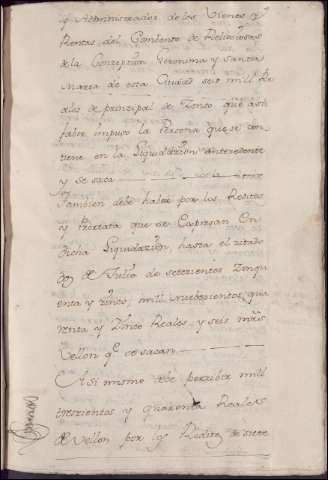 y Administrador de los Vienes y
Rentas del Combento de Religiosas
de la Concepcion Geronima y Santa
Maria de esta Ciudad seis mill Re
ales de principal de Zenso que a su
fabor impuso la Persona que se con
tiene en la Liquidazion antecedente
y se saca
Tambien debe haber por los Reditos
y Prorrata que se Expresan En
dicha Liquidazion, hasta el zitado
de Julio de setezientos Zinqu
enta y Zinco, mill nuebezientos, qua
renta y Zinco Reales, y seis mrs
Vellon qe. se sacan
Asi mismo debe perzibir mill
trescientos y quarenta Reales
de vellon por los Reditos de siete